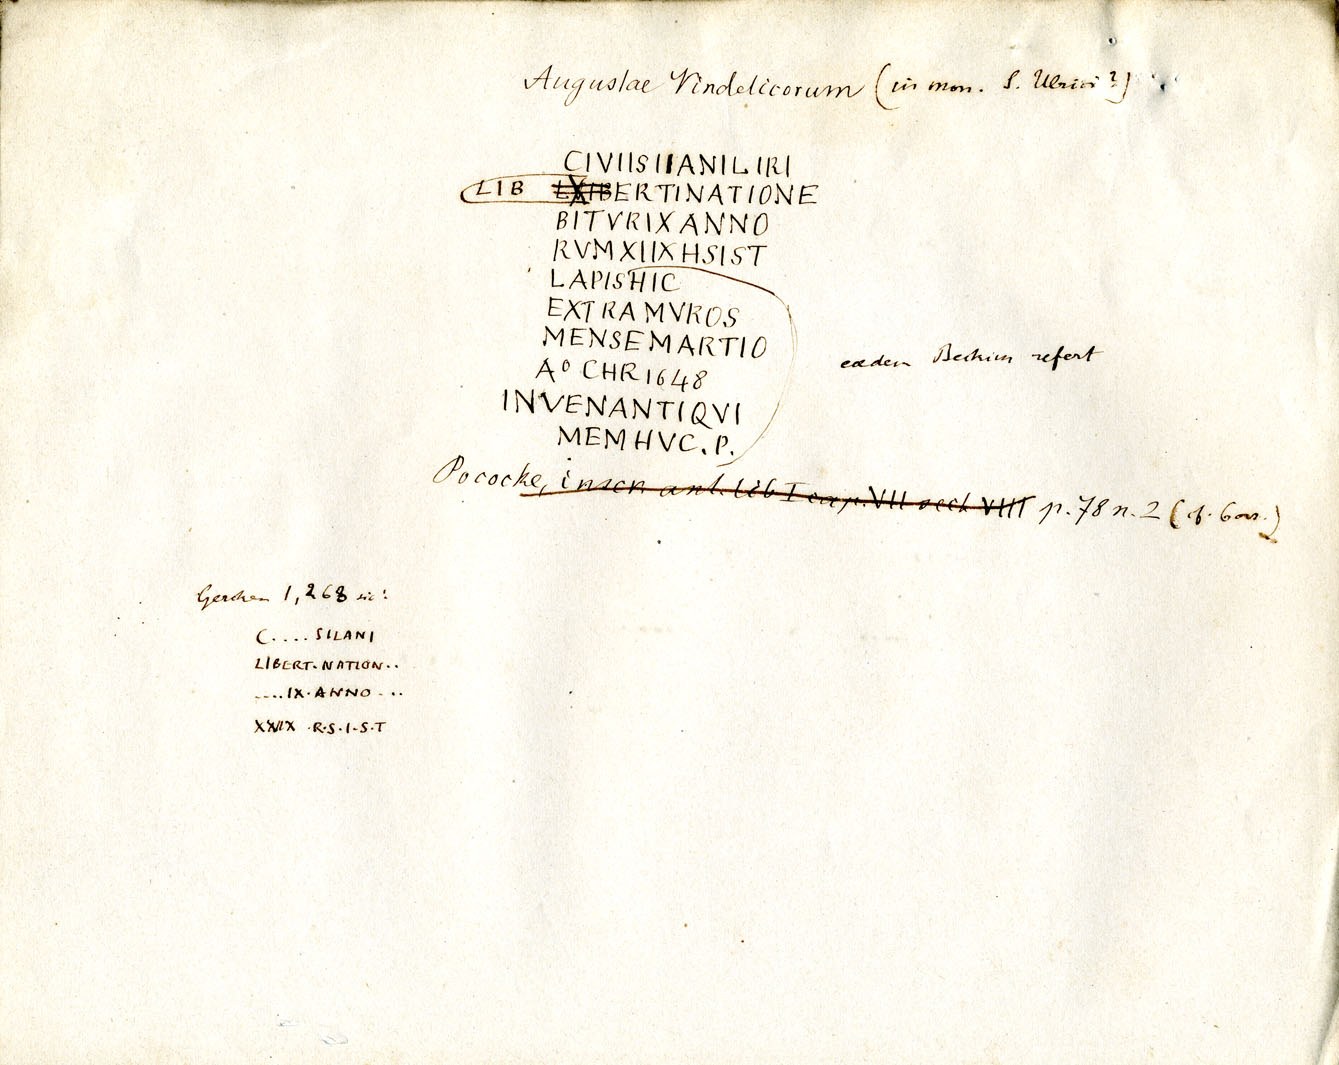 Augustae Vindelicorum (in mon. S. Ulrici?)
CIVIISIIANILIRI
LIB LXIBERTINATIONE
BITVRIXANNO
RVMXIIXHSIST
LAPISHIC
EXTRAMVROS
MENSEMARTIO
eadem refert
A° CHR 1648
INVENANTIQVI
MEMHVC.P.
Pococke, inscr. ant. lib I cap. VII sect. VIIII p. 78 n. 2 (cf. )
Gercken 1,268 sic:
C....SILANI
LIBERT.NATION..
....IX.ANNO...
XXIX.R.S.I.S.T